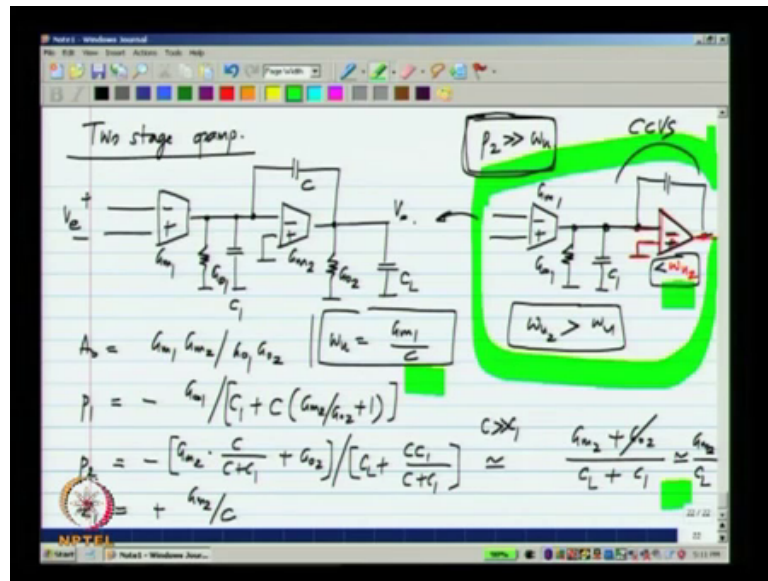 Note1 - Windows Journal
File Edit View Insert Actions Tools Help
Page Width
Two stage opamp.
P2 >> ωu
CCVS
Ve
+
-
-
+
Gm1
Go1
C1
C
-
+
Gm2
Go2
CL
Vo
Gm1
-
+
Go1
C1
-
+
< ωu2
ωu2 > ωu
A0 = Gm1 Gm2 / Go1 Go2
ωu = Gm1/C
P1 = - Go1 / [C1 + C (Gm2/Go2 + 1)]
P2 = - [Gm2 · C/(C+C1) + Go2] / [CL + CC1/(C+C1)] C>>C1 ≃ (Gm2 + Go2)/(CL + C1) ≃ Gm2/CL
Z1 = + Gm2/C
NPTEL
22 / 22
22
Start
Note1 - Windows Jour...
5:11 PM